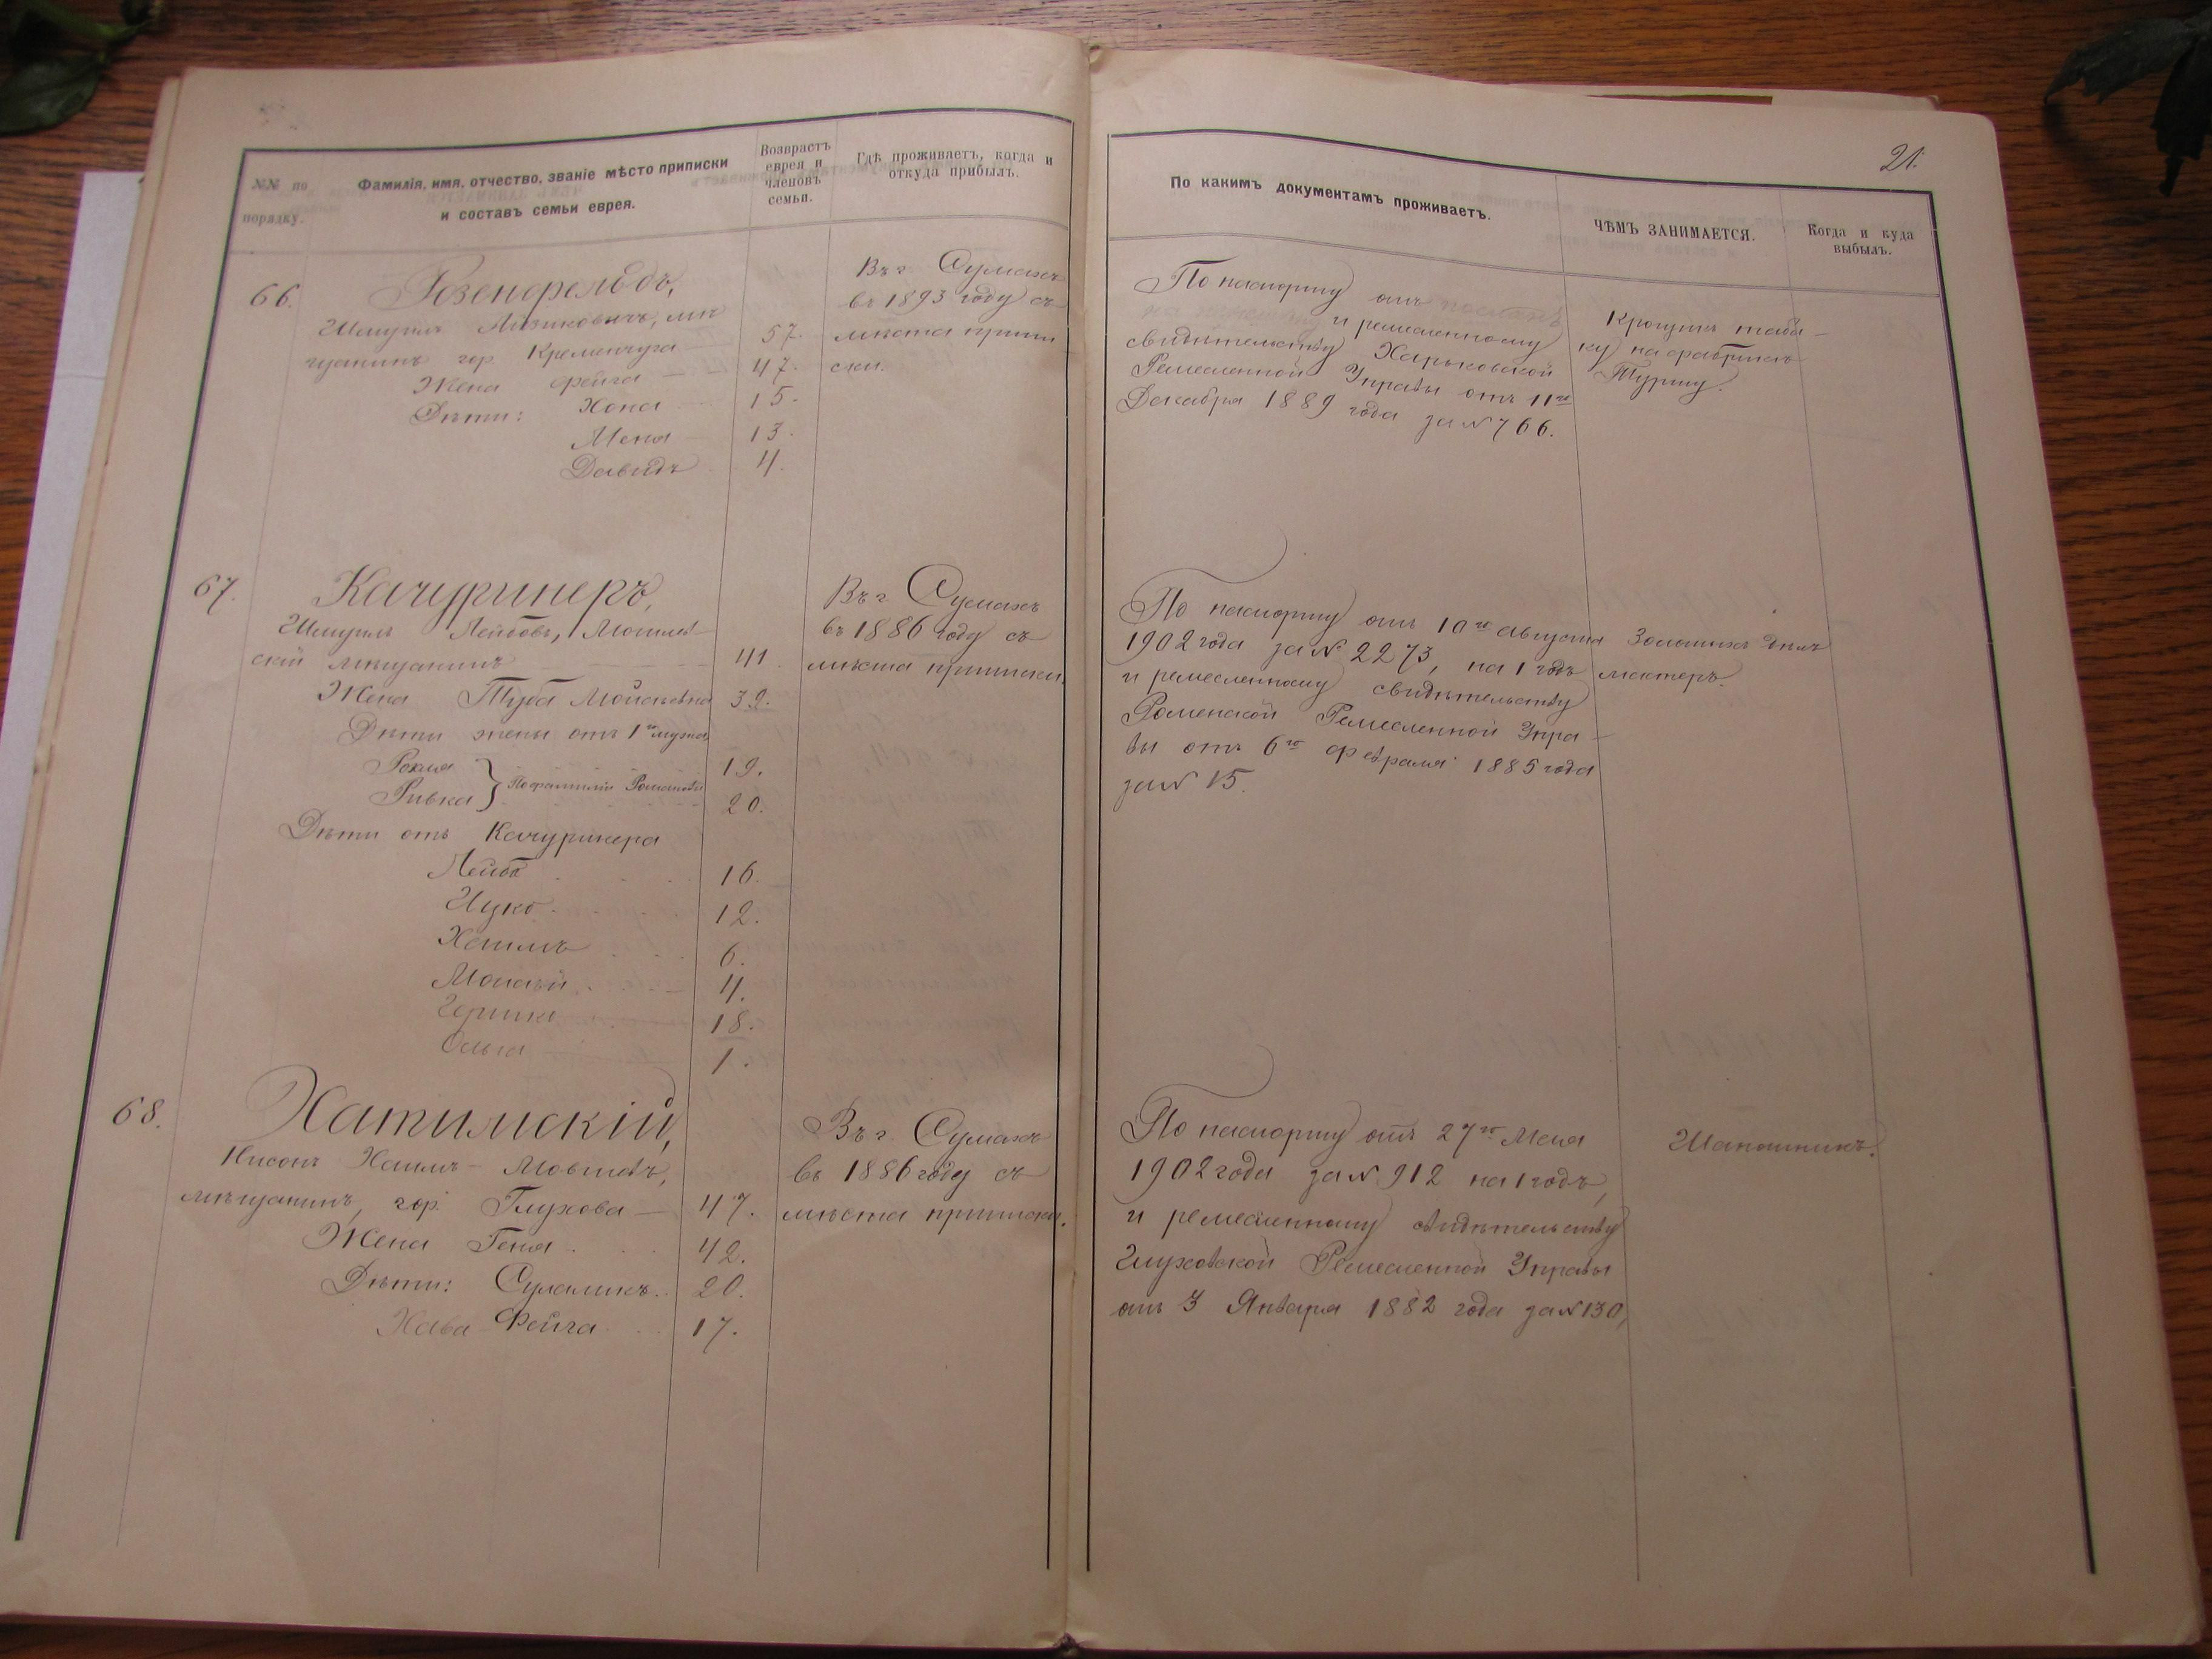 21.
№№ по порядку.
Фамилія, имя, отчество, званіе мѣсто приписки
и составъ семьи еврея.
Возврастъ
еврея и
членовъ
семьи.
Гдѣ проживаетъ, когда и
откуда прибылъ.
По какимъ документамъ проживаетъ.
ЧѢМЪ ЗАНИМАЕТСЯ.
Когда и куда
выбылъ.
66.
Розенфельдъ,
Шмуилъ Айзиковичъ, мѣ
щанинъ гор. Кременчуга 57.
Жена Фейга 47.
Дѣти: Хона 15.
Меня 13.
Давидъ 4.
Въ г. Сумахъ
въ 1893 году съ
мѣста припи
ски.
По паспорту отъ
и ремесленному
свидѣтельству Харьковской
Ремесленной Управы отъ 11го
Декабря 1889 года за № 766.
Крошитъ таба-
ку на фабрикѣ
67.
Качуринеръ,
Шмуилъ Лейбовъ,
скій мѣщанинъ 41
Жена Туба Мойсѣевна 39.
Дѣти жены отъ 1го мужа
19.
Ривка 20.
По фамиліи
Дѣти отъ Качуринера
Лейба 16.
Ицко 12.
Хаимъ 6.
Мойсѣй 4.
18.
Ольга 1.
Въ г. Сумахъ
въ 1886 году съ
мѣста приписки.
По паспорту отъ 10го Августа
1902 года за № 2273, на 1 годъ
и ремесленному свидѣтельству
Роменской Ремесленной Упра-
вы отъ 6го Февраля 1885 года
за № 15.
Золотыхъ дѣлъ
мастеръ.
68.
Хатимскій,
Нисонъ Хаимъ-Мовшевъ,
мѣщанинъ гор. Глухова 47.
Жена Геня 42.
Дѣти: 20.
Хава Фейга 17.
Въ г. Сумахъ
въ 1886 году съ
мѣста приписки.
По паспорту отъ 27го Мая
1902 года за № 912 на 1 годъ,
и ремесленному свидѣтельству
Глуховской Ремесленной Управы
отъ 3 Января 1882 года за № 130,
Шапошникъ.